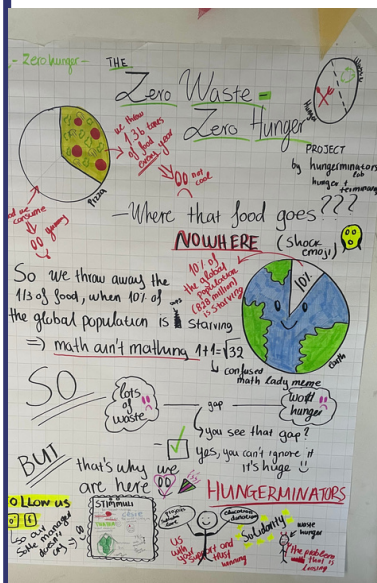 - Zero hunger -
THE
Zero Waste -
Zero Hunger
PROJECT
by hungerminators
hunger + terminators
we throw
1.3b tones
of food
every year
not
cool
Pizza
we
consume
yummy
- Where that food goes ???
NOWHERE (shock
emoji)
10% of
the global
population
(828 million)
is starving
10%
Earth
So we throw away the
1/3 of food, when 10% of
the global population is starving
=> math ain't mathing 1+1=√32
confused
math lady meme
SO
lots
of
waste
gap
world
hunger
you see that gap?
yes, you can't ignore it
it's huge
BUT
that's why we
are here
HUNGERMINATORS
OLLOW US
STIMMULI
education
donation
Solidarity
waste
hunger
US
with
support and
trust
winning
the problem
that is